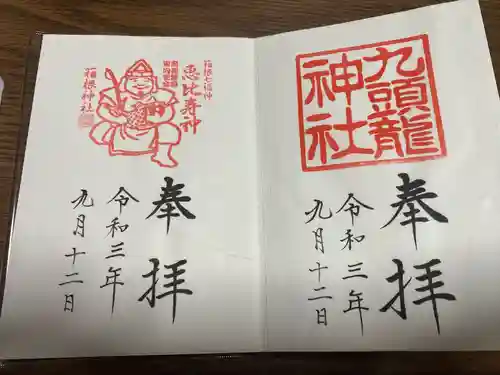 九頭龍
神社
奉拝
令和三年
九月十二日
箱根七福神
恵比寿神
箱根神社
奉拝
令和三年
九月十二日